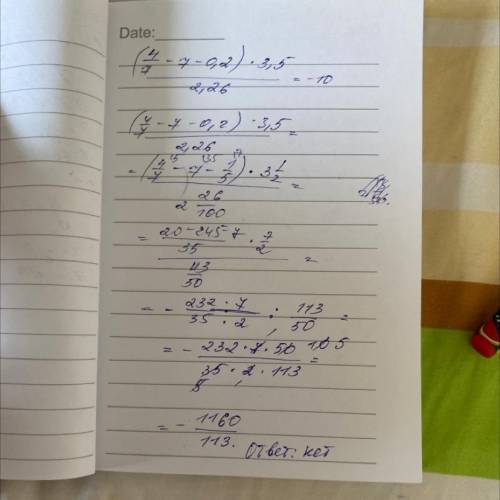 Date:
(4/7 - 7 - 0,2) · 3,5 / 2,26 = -10
(4/7 - 7 - 0,2) · 3,5 / 2,26 =
= (4/7 - 7 - 1/5) · 3 1/2 / 2 26/100 =
= 20-245-7 / 35 · 7/2 / 43/50 =
= - 232 · 7 / 35 · 2 : 113/50 =
= - 232 · 7 · 50 10 5 / 35 5 · 2 · 113 =
= - 1160/113. Ответ: нет